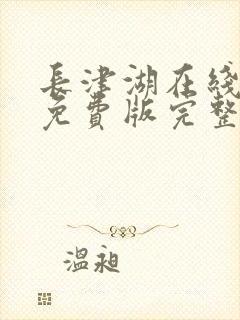 長津湖在綫
免費版完整
溫昶